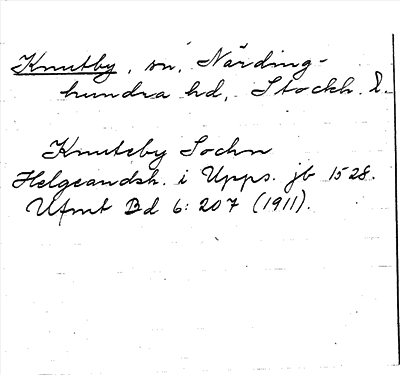 Knutby, sn, Närding-
hundra hd, Stockh. l.
Knuteby Sochn
Helgeandsh. i Upps. jb 1528.
Ufmt Bd 6: 207 (1911).